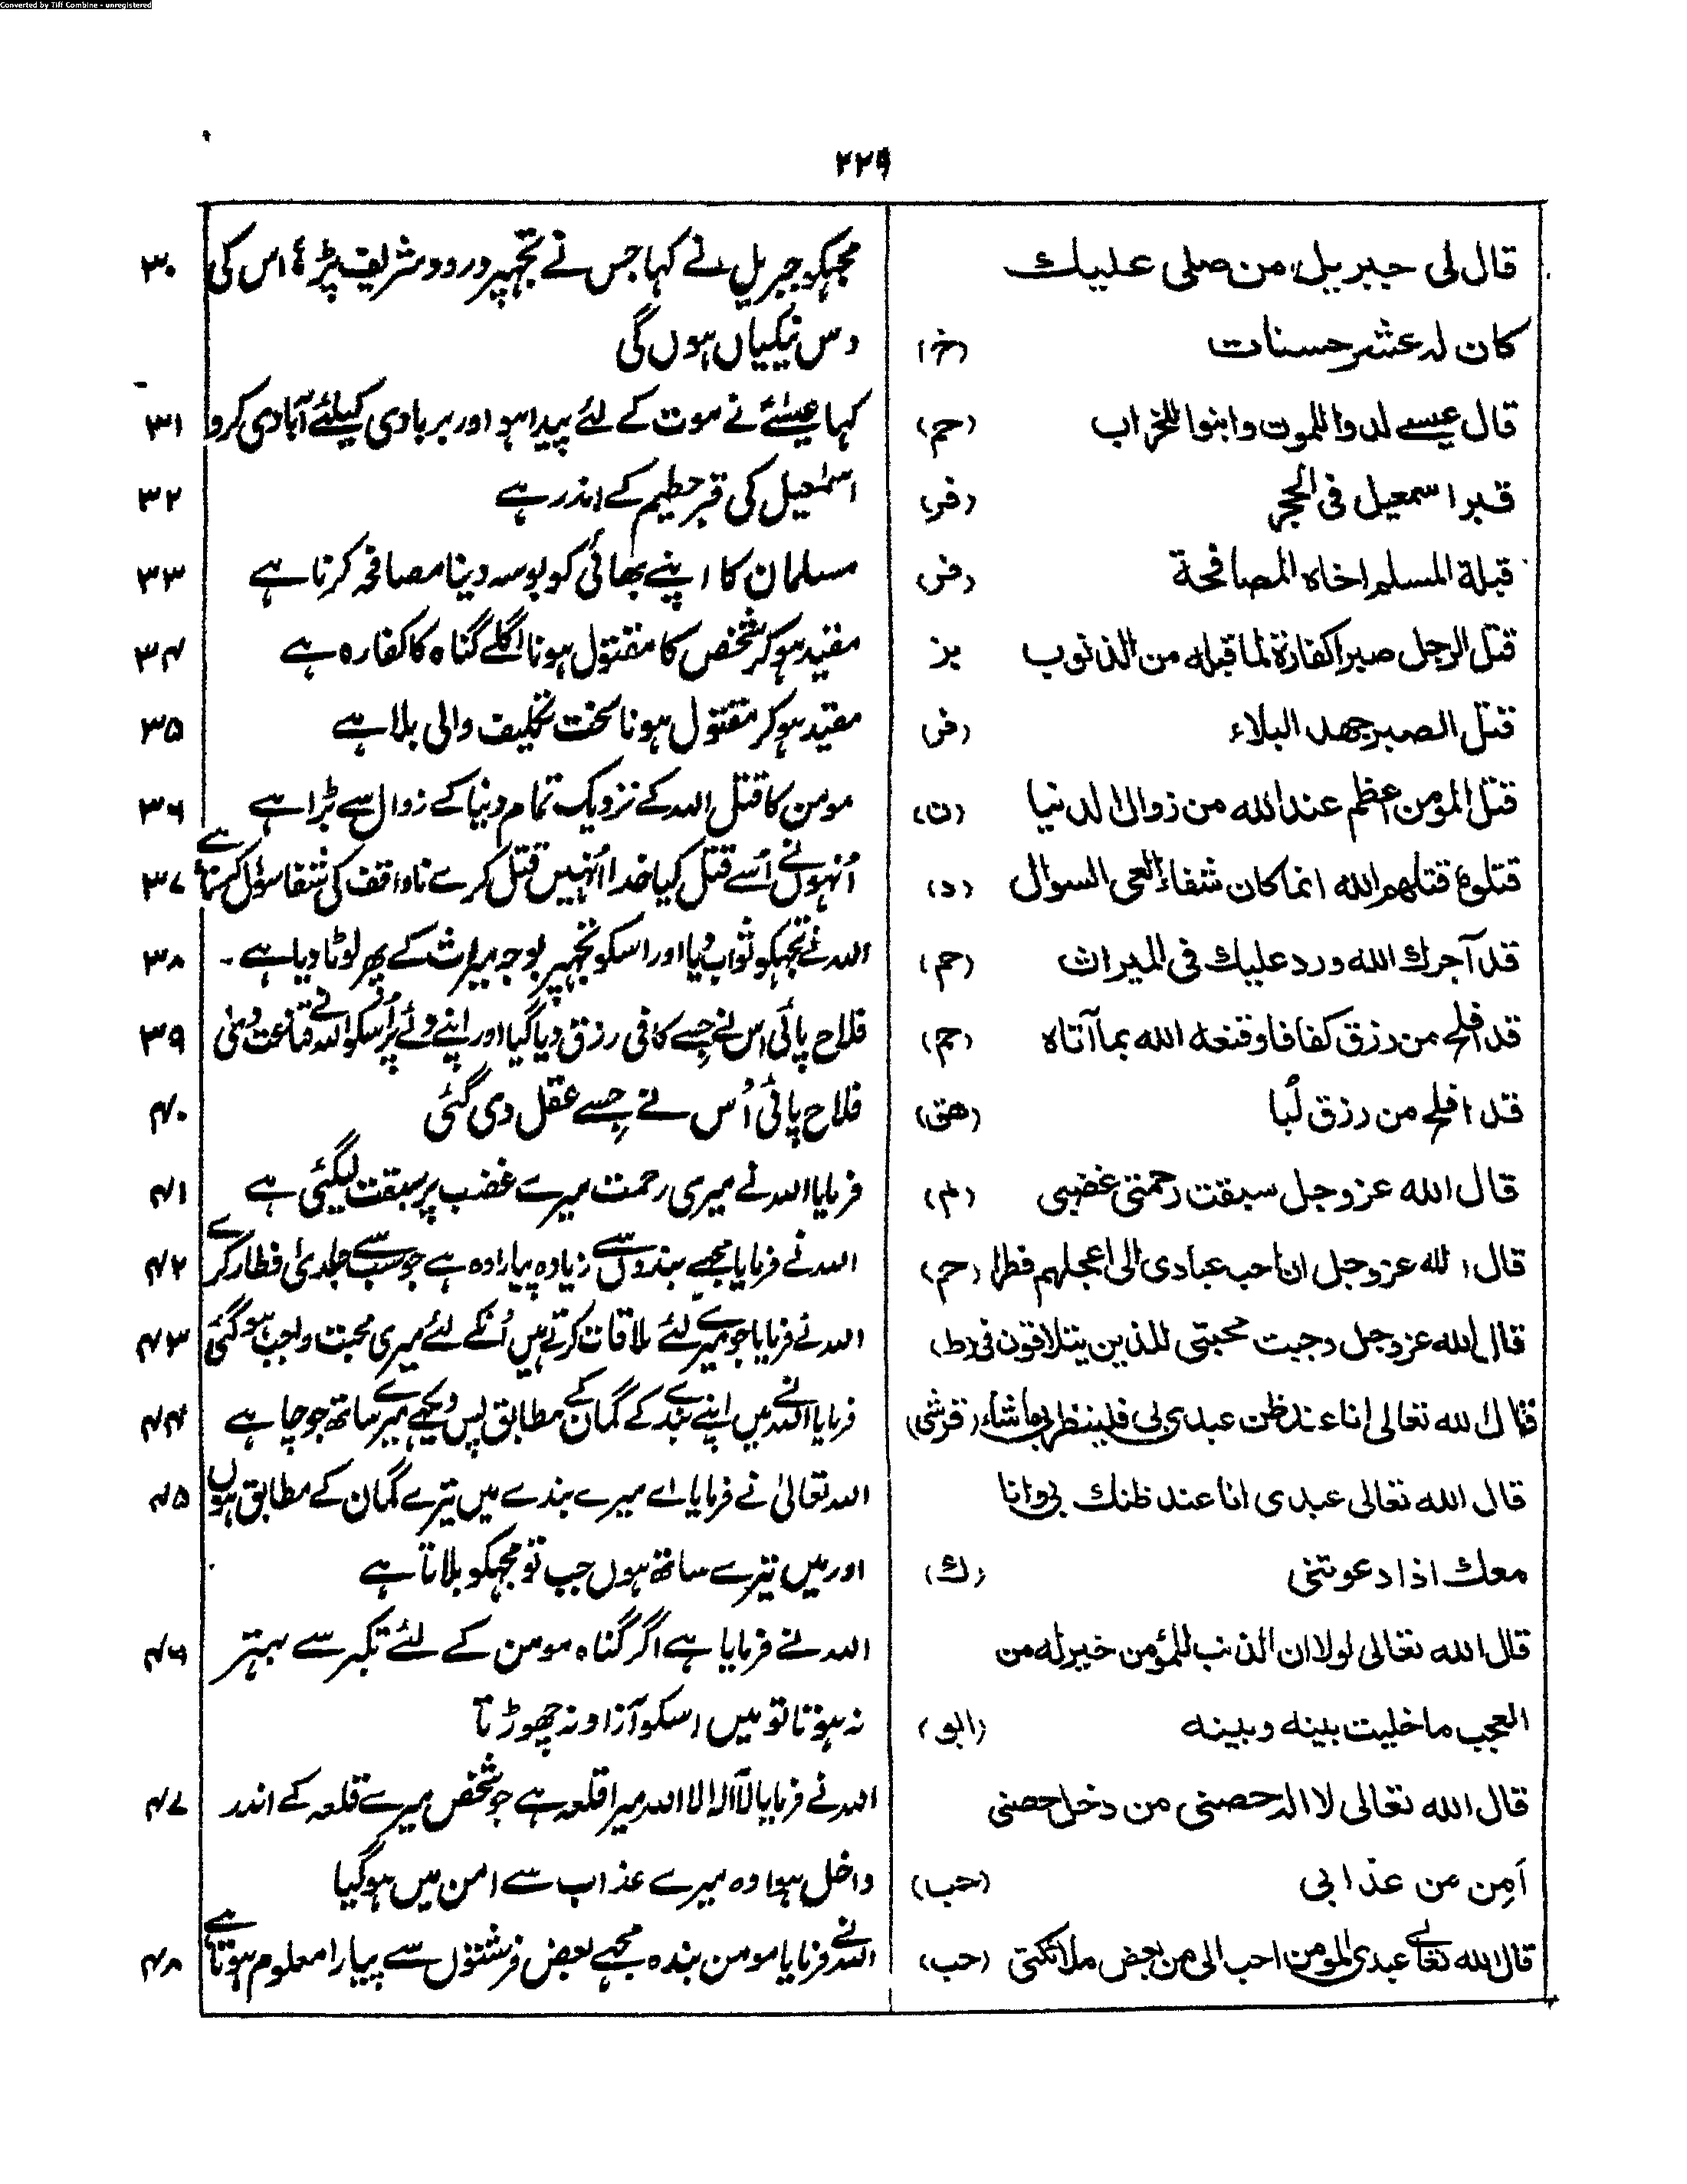 Converted by Tiff Combine - unregistered
۲۲۹
قال لی جبریل من صلی علیك مجہکو جبریل نے کہا جس نے تجہپر درود شریف پڑہا اس کی ۳۰
کان لہ عشر حسنات (خ) دس نیکیاں ہوں گی
قال عیسے لدوا للموت وابنوا للخراب (حم) کہا عیسٰےؑ نے موت کے لئے پیدا ہو اور بربادی کیلئے آبادی کرو ۳۱
قبر اسمعیل فی الحجر (فر) اسمٰعیل کی قبر حطیم کے اندر ہے ۳۲
قبلة المسلم اخاہ المصافحة (فر) مسلمان کا اپنے بھائی کو بوسہ دینا مصافحہ کرنا ہے ۳۳
قتل الرجل صبرا کفارة لما قبلہ من الذنوب بز مقید ہو کر شخص کا مقتول ہونا اگلے گناہ کا کفارہ ہے ۳۴
قتل الصبر جھد البلاء (فر) مقید ہو کر مقتول ہونا سخت تکلیف والی بلا ہے ۳۵
قتل المومن اعظم عند الله من زوال الدنیا (ن) مومن کا قتل اللہ کے نزدیک تمام دنیا کے زوال سے بڑا ہے ۳۶
قتلوہ قتلھم الله انما کان شفاء العی السوال (د) اُنہوں نے اُسے قتل کیا خدا اُنہیں قتل کرے ناواقف کی شفا سوال کرنا ہے ۳۷
قد آجرك الله ورد علیك فی المیراث (حم) اللہ نے تجہکو ثواب دیا اور اسکو تجہپر بوجہ میراث کے پھر لوٹا دیا ہے۔ ۳۸
قد افلح من رزق کفافا وقنعه الله بما آتاہ (حم) فلاح پائی اس نے جسے کافی رزق دیا گیا اور اپنے دئے پر اُسکو اللہ نے قناعت دی ۳۹
قد افلح من رزق لُبا (هق) فلاح پائی اُس نے جسے عقل دی گئی ۴۰
قال الله عزوجل سبقت رحمتی غضبی (م) فرمایا اللہ نے میری رحمت میرے غضب پر سبقت لیگئی ہے ۴۱
قال الله عزوجل ان احب عبادی الی اعجلھم فطرا (حم) اللہ نے فرمایا مجھے بندوں سے زیادہ پیارا وہ ہے جو سب سے جلدی افطار کرے ۴۲
قال الله عزوجل وجبت محبتی للذین یتلاقون فی (ط) اللہ نے فرمایا جو میرے لئے ملاقات کرتے ہیں اُنکے لئے میری محبت واجب ہو گئی ۴۳
قال الله تعالی انا عند ظن عبدی بی فلینظر بی ماشاء (قرشی) فرمایا اللہ نے میں اپنے بندے کے گمان کے مطابق پس دیکھے میرے ساتھ جو چاہے ۴۴
قال الله تعالی عبدی انا عند ظنك بی وانا اللہ تعالیٰ نے فرمایا اے میرے بندے میں تیرے گمان کے مطابق ہوں ۴۵
معك اذا دعوتنی (ك) اور میں تیرے ساتھ ہوں جب تو مجہکو بلاتا ہے
قال الله تعالی لولا ان الذنب للمؤمن خیر له من اللہ نے فرمایا ہے اگر گناہ مومن کے لئے تکبر سے بہتر ۴۶
العجب ما خلیت بینه وبینه (ابو) نہ ہوتا تو میں اسکو آزاد نہ چھوڑتا
قال الله تعالی لا الہ حصنی من دخل حصنی اللہ نے فرمایا لآ الہ الا اللہ میرا قلعہ ہے جو شخص میرے قلعہ کے اندر ۴۷
اَمِن من عذابی (حب) داخل ہوا وہ میرے عذاب سے امن میں ہو گیا
قال الله تعالے عبدی المومن احب الی من بعض ملائکتی (حب) اللہ نے فرمایا مومن بندہ مجہے بعض فرشتوں سے پیارا معلوم ہوتا ہے ۴۸